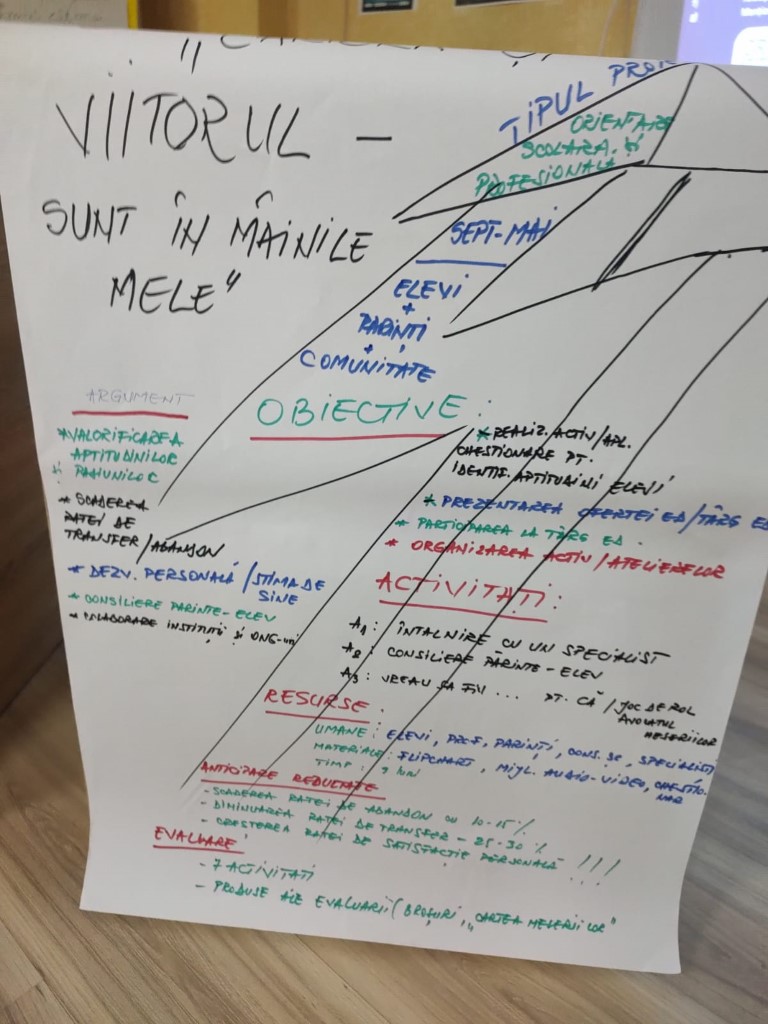 VIITORUL -
SUNT ÎN MÂINILE
MELE"
TIPUL
ORIENTARE
SCOLARA ȘI
PROFESIONALA
SEPT-MAI
ELEVI
+
PARINȚI
+
COMUNITATE
ARGUMENT
*VALORIFICAREA
APTITUDINILOR
ȘI PASIUNILOR
* SCADEREA
RATEI DE
TRANSFER/ABANDON
* DEZV. PERSONALĂ /STIMA DE
SINE
* CONSILIERE PARINTE-ELEV
* COLABORARE INSTITUȚII ȘI ONG-uri
OBIECTIVE:
*REALIZ. ACTIV/APL.
CHESTIONARE PT.
IDENTIF. APTITUDINI ELEVI
* PREZENTAREA OFERTEI ED/TÂRG ED
* PARTICIPAREA LA TÂRG ED.
* ORGANIZAREA ACTIV/ATELIERELOR
ACTIVITATI:
A1: ÎNTALNIRE CU UN SPECIALIST
A2: CONSILIERE PĂRINTE-ELEV
A3: VREAU SA FIU... PT. CĂ/JOC DE ROL
AVOCATUL
MESERIILOR
RESURSE:
UMANE: ELEVI, PROF, PARINȚI, CONS. ȘC, SPECIALISTI
MATERIALE: FLIPCHART, MIJL. AUDIO-VIDEO, CHESTIO-
NAR
TIMP: 9 luni
ANTICIPARE REZULTATE
- SCADEREA RATEI DE ABANDON CU 10-15%
- DIMINUAREA RATEI DE TRANSFER - 25-30%
- CRESTEREA RATEI DE SATISFACTIE PERSONALĂ !!!
EVALUARE
- 7 ACTIVITATI
- PRODUSE ALE EVALUARII (BROȘURI, „CARTEA MESERIILOR"